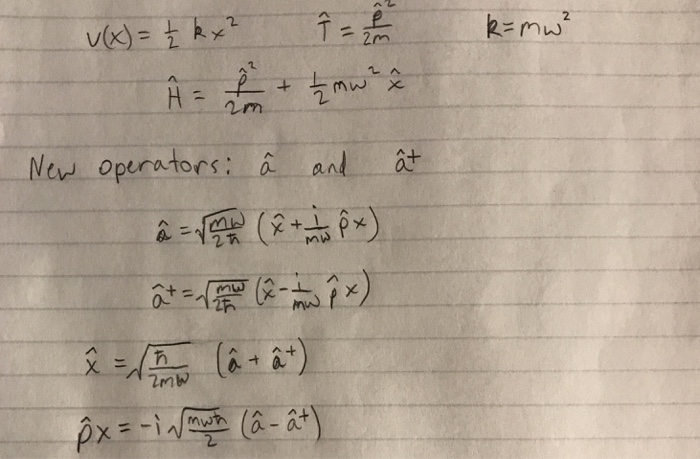 V(x) = ½ kx²   T̂ = p̂²/2m   k = mω²
Ĥ = p̂²/2m + ½ mω² x̂
New operators: â and â†
â = √(mω/2ħ) (x̂ + i/mω p̂x)
â† = √(mω/2ħ) (x̂ - i/mω p̂x)
x̂ = √(ħ/2mω) (â + â†)
p̂x = -i √(mωħ/2) (â - â†)